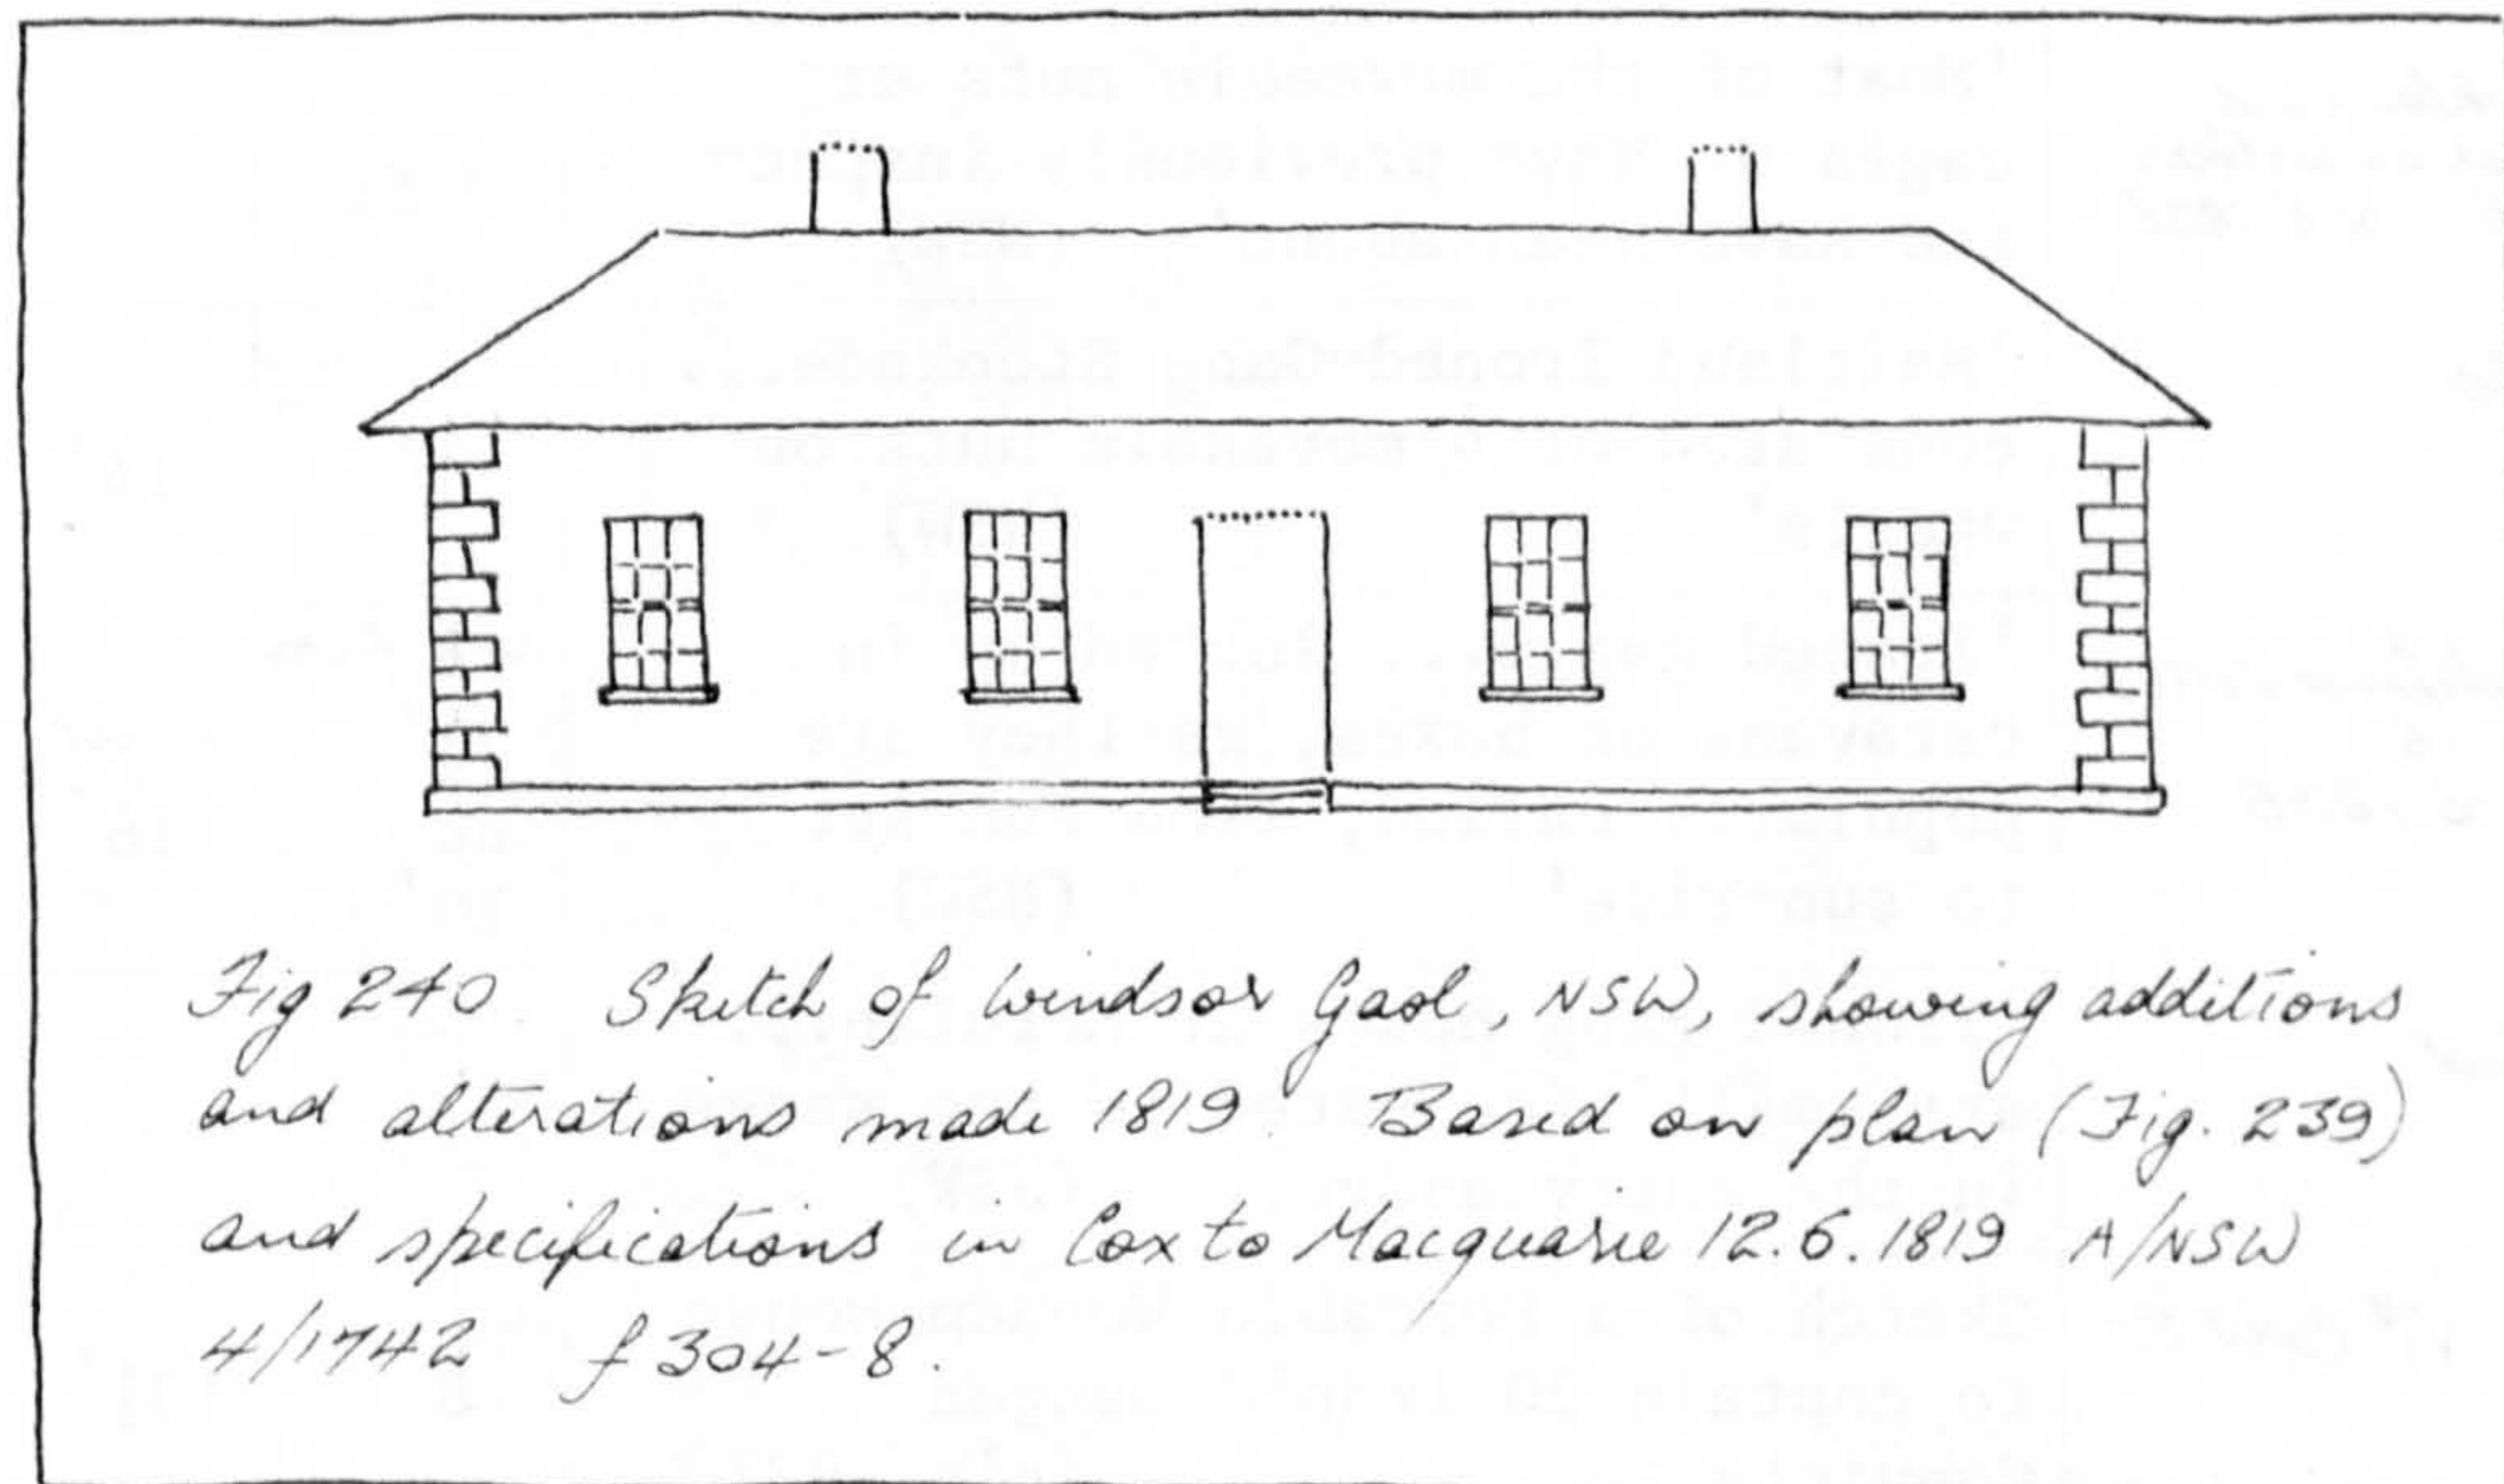 Fig 240 Sketch of Windsor Gaol, NSW, showing additions
and alterations made 1819. Based on plan (Fig. 239)
and specifications in Cox to Macquarie 12.6.1819 A/NSW
4/1742 f 304-8.